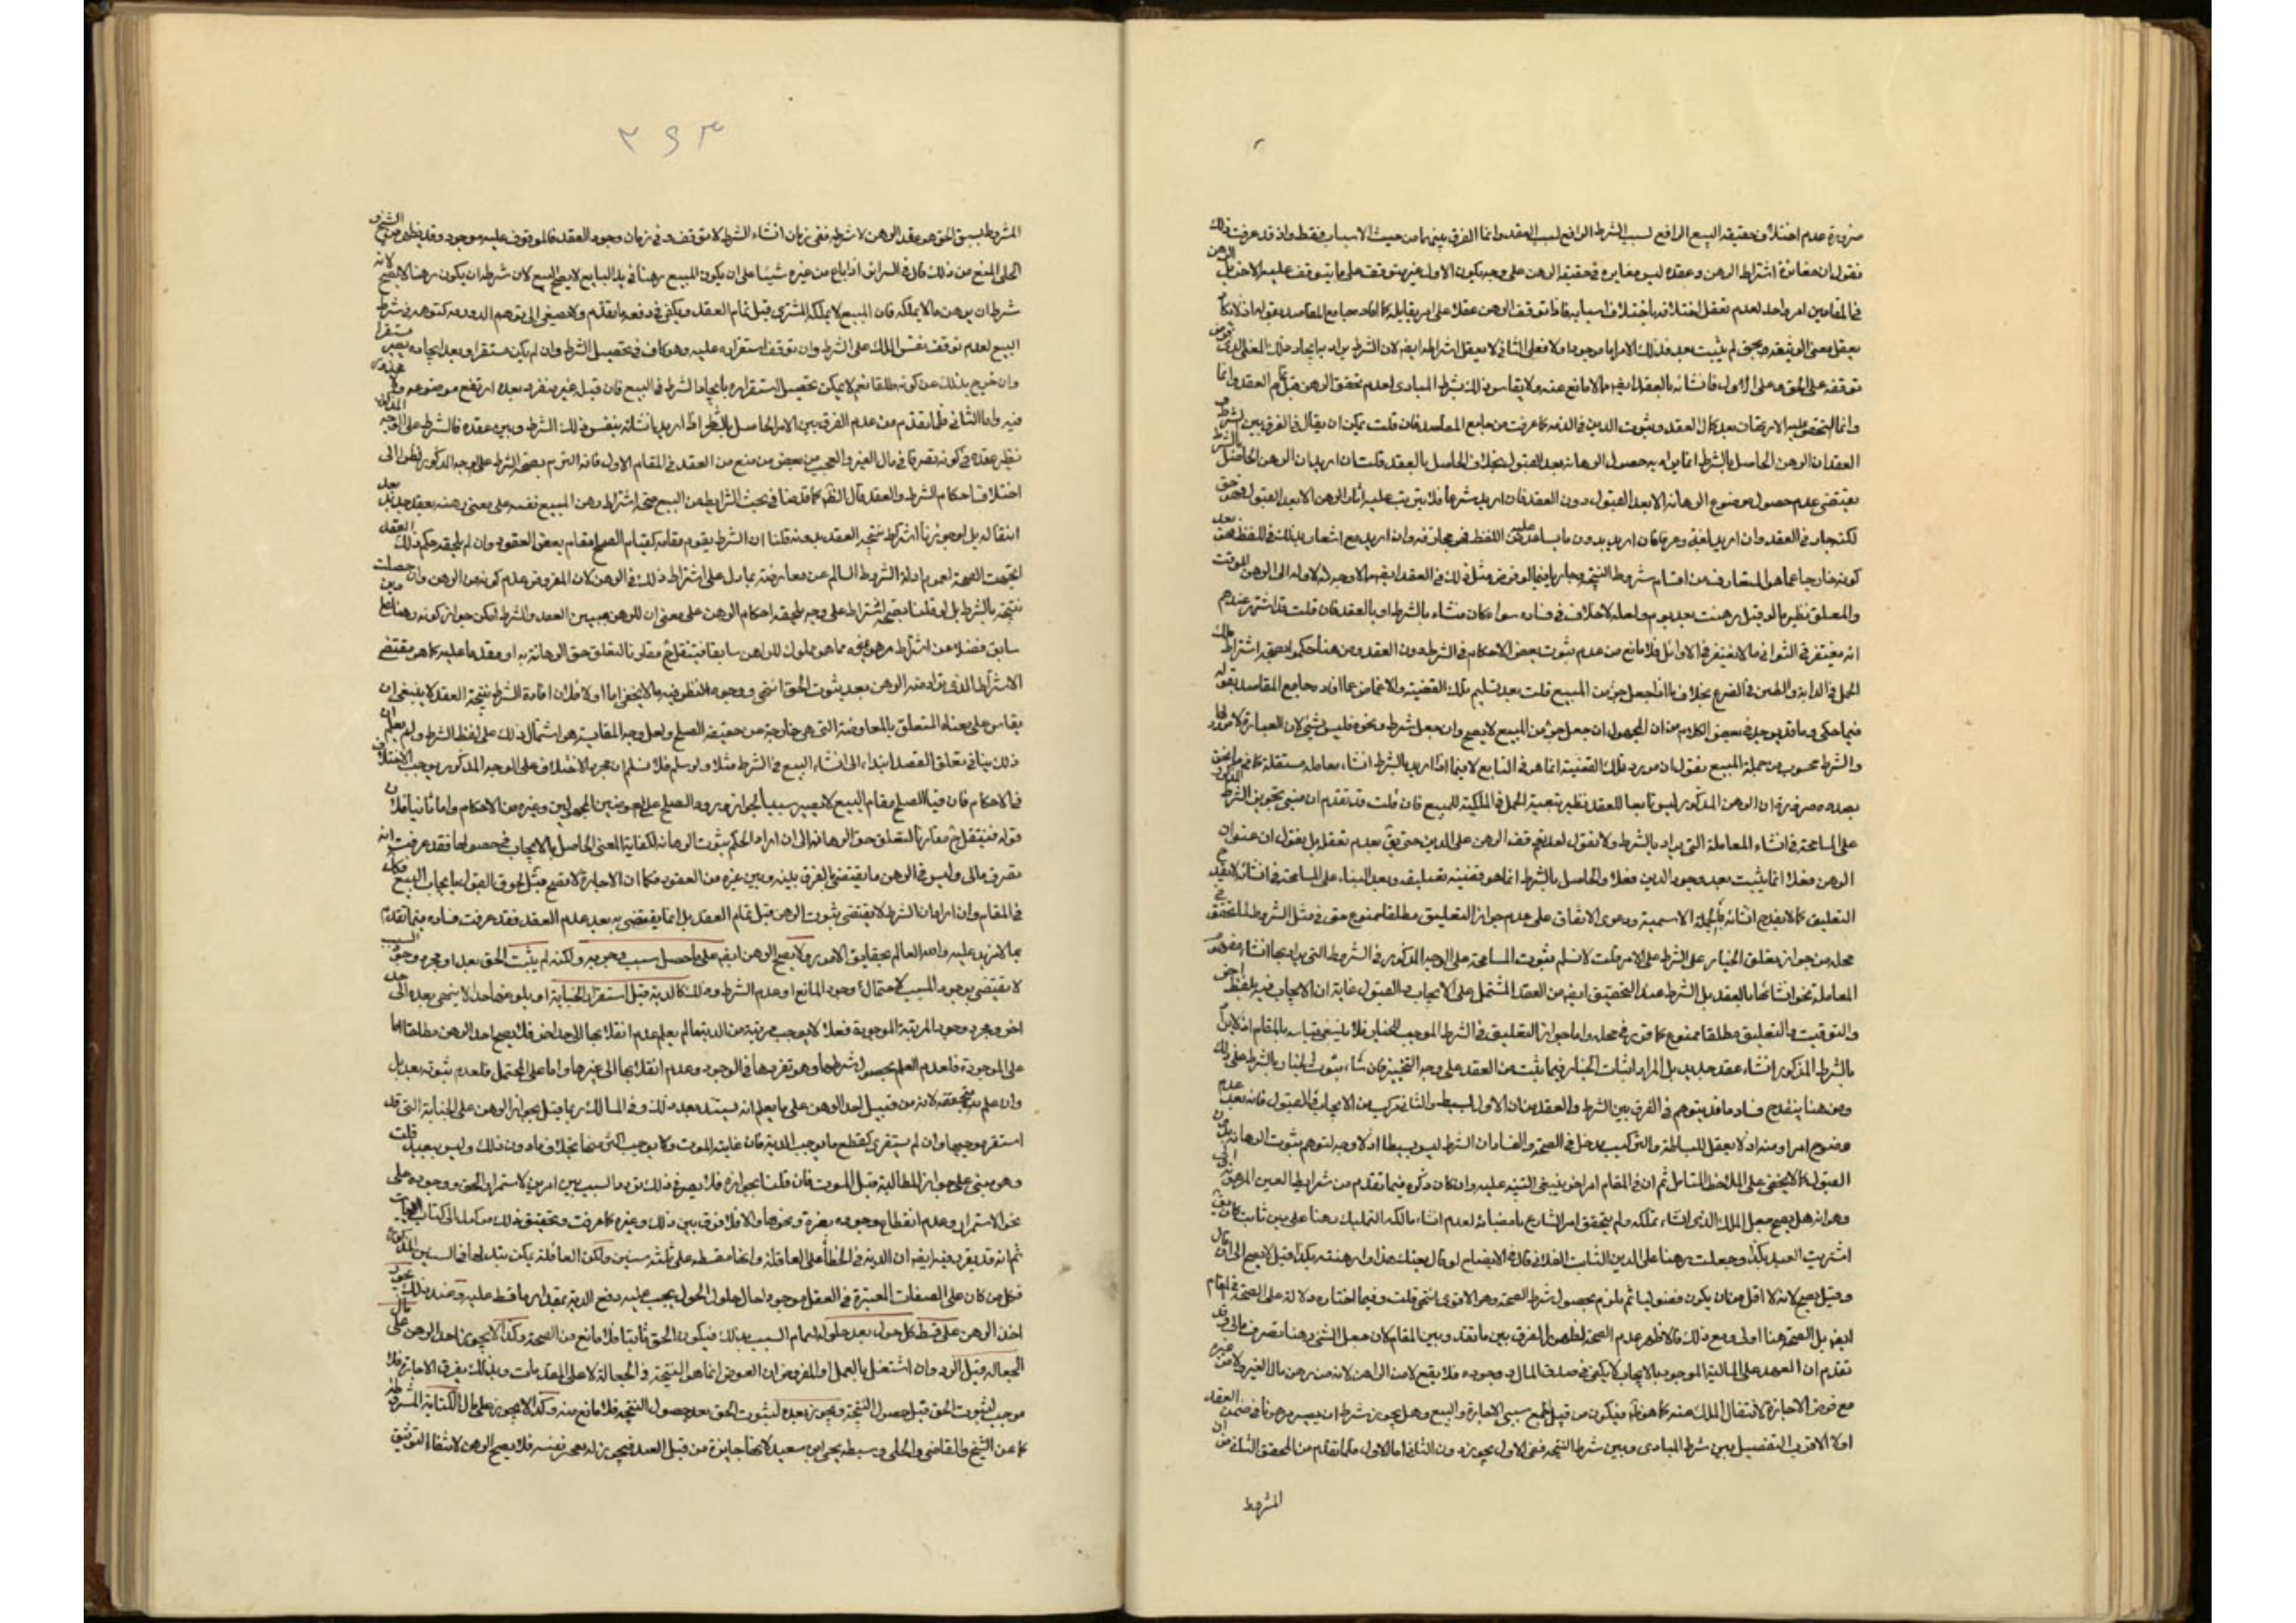 ضرورة عدم اختلاف حقيقة البيع الرافع لسبب الشرط الرافع لسبب العقد وانما الفرق بينهما من حيث الاسباب فقط واذ قد عرفت ذلك
فنقول ان مغايرة اشتراط الرهن وعقده ليس مغايرة في حقيقة الرهن على وجه يكون الاول غير متوقف على ما يتوقف عليه الاخر بل الرهن
في المقامين امر واحد لعدم تعقل اختلافه باختلاف اسبابه فاذا توقف الرهن عقدا على امر يقابله كما افاد جامع المقاصد بقوله اذ لا
يعقل معنى الوثيقة بحق لم يثبت بعد فذلك الامر اما موجود اولا فعلى الثاني لا يعقل اشتراطه ايضا لان الشرط يراد به ايجاد ذلك المعنى الذي
توقفه على الحق وعلى الاول فانشائه بالعقد ايضا مما لا مانع عنه ولا يقاس ذلك بشرط المبادي لعدم تحقق الرهن قبل تمام العقد وانما
وانما التحقق عليه الارتهان بعد كمال العقد وثبوت الدين في الذمة كما عرفت من جامع المقاصد فان قلت يمكن ان يقال في الفرق بين الشرط و
العقد ان الرهن الحاصل بالشرط انما يراد به حصول الرهانة بعد القبول بخلاف الحاصل بالعقد قلت ان اريد ان الرهن الحاصل بالشرط
يقتضى عدم حصول موضوع الرهانة الا بعد القبول دون العقد فان اريد شرعا فلا يترتب عليه اثار الرهن الا بعد القبول
لكنه جار في العقد وان اريد لغة وعرفا فان اريد بدون ما يساعد عليه اللفظ فهو مجازفة وان اريد مع اشعار بذلك في اللفظ فمع بعد
كونه خارجا عما هو المتعارف من اقسام شروط النتيجة وجاريا فيما لو فرض مثل ذلك في العقد ايضا مما لا وجه له لاوله الى الرهن الموقت
والمعلق نظير ما لو قيل رهنت بعد يوم ولعله لا خلاف في فساده سواء كان منشاء بالشرط او بالعقد فان قلت قد اشتهر عندهم
انه يغتفر في الثواني ما لا يغتفر في الاوائل فلا مانع من عدم ثبوت بعض الاحكام في الشرط دون العقد ومن هنا حكموا بصحة اشتراط
الحمل في الدابة والطين في الضرع بخلاف ما اذا جعل جزء من المبيع قلت بعد تسليم تلك القضية والاغماض عما افاد جامع المقاصد بقوله
فيما حكي وما قد يوجد في بعض الكلام من ان المجهول ان جعل جزء من المبيع لا يصح وان جعل شرطا ونحوه فليس بشئ لان العبارة لا اثر لها
والشرط محسوب من جملة المبيع نقول ان مورد تلك القضية انما هو في التابع لا فيما اذا اريد بالشرط انشاء معاملة مستقلة كما في ما نحن
بصدده ضرورة ان الرهن المذكور ليس تابعا للعقد نظير تبعية الحمل في الملكية للمبيع فان قلت قد تقدم ان مبنى تجويز الشرط
على المسامحة في انشاء المعاملة التي يراد بالشرط ولا نقول لعدم توقف الرهن على الدين حتى يق بعدم تعقل بل يقول ان عنوان
الرهن فعلا انما يثبت بعد وجود الدين فعلا والحاصل بالشرط انما هو قضية تعليقية وبعد البناء على المسامحة في انشائه لا يقدح
التعليق كما لا يقدح انشائه بالجملة الاسمية ودعوى الاتفاق على عدم جواز التعليق مطلقا ممنوع حتى في مثل الشروط
محله من جواز تعلق الخيار على الشرط على الامر قلت لا نسلم ثبوت المسامحة على الوجه المذكور في الشروط التي يراد بها انشاء
المعاملة نحو انشائها بالعقد بل الشرط عند التحقيق ايضا من العقد المشتمل على الايجاب والقبول غاية ان الايجاب فيه بلفظ اخر
والتوقيت والتعليق مطلقا ممنوع كما قرر في محله واما جواز التعليق في الشرط الموجب للخيار فلا ينبغي قياسه بالمقام اذ لا يراد
بالشرط المذكور انشاء عقد جديد بل المراد اثبات الخيار فيما يثبت من العقد على وجه التخيير فان شاء ثبوت الخيار بالشرط على ذلك
ومن هنا ينقدح فساد ما قد يتوهم في الفرق بين الشرط والعقد من ان الاول بسيط والثاني مركب من الايجاب والقبول فانه بعد عدم
وضوح المراد منه اذ لا يعقل للبساطة والتركيب مدخل في الصحة والفساد ان الشرط ليس بسيطا اذ لا وجه لتوهم ثبوت الرهانة بدون
القبول كما لا يخفى على الملاحظ المتامل ثم ان في المقام امر اخر ينبغي التنبيه عليه وان كان ذكره فيما تقدم من شرايط العين المرهونة
وهو انه هل يصح جعل الملك الذي انشاء تملكه ولم يتحقق امر الشارع بامضائه لعدم انشاء مالكه التمليك رهنا على دين ثابت كان يقول
اشتريت العبد بكذا وجعلته رهنا على الدين الثابت الفلاني قال في الايضاح لو قال بعتك هذا وارتهنته بكذا قيل لا يصح الى ان قال
وقيل يصح لانه لا اقل من ان يكون فضوليا ثم يلزم بحصول شرط الصحة وهو الاقوى انتهى قلت وفيما اختاره دلالة على الصحة في المقام
ايضا بل الصحة هنا اولى ومع ذلك فالاظهر عدم الصحة لظهور الفرق بين ما تقدم وبين المقام لان جعل الشئ رهنا تصرف مالي وقد
تقدم ان العهد على المالية الموجود بالايجاب لا يكفي في صدق المال وجوده فلا يقع لا من الراهن لانه من رهن مال الغير ولا من غيره
مع فرض الاجازة لانتقال الملك عنه كما هو ظ فيكون من قبيل تجمع سببي الاجارة والبيع وهل يجوز شرط ان يصير مرهونا في ضمن العقد
اولا الاقرب التفصيل بين شرط المبادي وبين شرط النتيجة ففي الاول يجوز دون الثاني اما الاول فلما تقدم من المحقق الثاني من ان
المشروط
٣٩٣
المشروط يسبق الحق هو عقد الرهن لا شرطه ففي زمان انشاء الشرط لا توقف وفي زمان وجود العقد فالموقوف عليه موجود وقد يظهر من الشيخ و
الحلي المنع من ذلك قال في السرائر اذا باع من غيره شيئا على ان يكون المبيع رهنا في يد البايع لا يصح البيع لان شرطه ان يكون رهنا لا يصح لانه
شرط ان يرهن ما لا يملكه فان المبيع لا يملكه المشتري قبل تمام العقد ويكفي في دفعه ما تقدم ولا تصغى الى توهم الدور فيه كتوهمه في شرط
البيع لعدم توقف نفس الملك على الشرط وان توقف استقراره عليه وهو كاف في تحصيل الشرط وان لم يكن مستقرا وبعد ايجاده يصير مستقرا
وان خرج بذلك عن كونه طلقا نعم لا يمكن تحصيل استقراره بايجاد الشرط في البيع فان قبل غير منفرد بعده ارتفع موضوعه
فيه واما الثاني فلما تقدم من عدم الفرق بين الامر الحاصل بالشرط اذا اريد انشائه بنفس ذلك الشرط وبين عقده فالشرط على الوجه المذكور
نظير عقده في كونه تصرفا في مال الغير والعجب من بعض من منع من العقد في المقام الاول فانه التزم بصحة الشرط على الوجه المذكور نظرا الى
اختلاف احكام الشرط والعقد قال الظم كما قدمنا في بحث الشرايط من البيع صحة اشتراط رهن المبيع نفسه على معنى رهنه بعقد جديد بعد
انتقاله بل لو جوزنا اشتراط نتيجة العقد بدونه وقلنا ان الشرط يقوم مقامه كقيام الصلح مقام بعض العقود وان لم يلحقه حكم ذلك العقد
اتجهت الصحة لعموم ادلة الشروط السالم عن معارضة ما دل على اشتراط ذلك في الرهن لان المفروض عدم كونه من الرهن وان حصلت
نتيجته بالشرط بل لو قلنا بصحة اشتراطه على وجه يلحقه احكام الرهن على معنى ان للرهن سببين العقد والشرط امكن جواز كونه رهنا على دين
سابق فضلا عن اشتراط مرهونيته مما هو مملوك للراهن سابقا فينتقل ثم مقارنا لتعلق حق الرهانة به او مقدما عليه كما هو مقتضى
الاشتراط الذي يراد منه الرهن بعد ثبوت الحق انتهى ووجوه النظر فيه مما لا يخفى اما اولا فلان افادة الشرط نتيجة العقد لا ينبغي ان
يقاس على معناه المتعلق بالمعاوضة التي هي خارجة من حقيقة الصلح ولعل وجه المقايسة هو اشتمال ذلك على لفظ الشرط ولم يعلم ان
ذلك ينافي تعلق القصد ابتداء الى انشاء البيع في الشرط مثلا ولو سلم فلا نسلم ان مجرد الاختلاف على الوجه المذكور يوجب الاختلاف
في الاحكام فان قيام الصلح مقام البيع لا يصير سببا لجواز ورود الصلح على العوضين المجهولين وغيره من الاحكام واما ثانيا فلان
قوله فينتقل ثم مقارنا لتعلق حق الرهانة الى ان اراد الحكم بثبوت الرهانة لكفاية المعنى الحاصل بالايجاب في حصولها فقد عرفت انه
تصرف مالي وليس في الرهن ما يقتضي الفرق بينه وبين غيره من العقود فكما ان الاجارة لا تصح قبل لحوق القبول بايجاب البيع فكذا
في المقام وان اراد ان الشرط لا يقتضي ثبوت الرهن قبل تمام العقد بل انما يقتضي به بعد عدم العقد فقد عرفت فساده فيما تقدم
بما لا مزيد عليه والله العالم بحقايق الامور ولا يصح الرهن ايضا على ما حصل سبب وجوبه ولكنه لم يثبت الحق بعد اذ مجرد وجود السبب
لا يقتضي وجود المسبب لاحتمال وجود المانع او عدم الشرط وذلك كالدية قبل استقرار الجناية او بلوغها حدا لا ينتهي بعده الى حد
اخر ومجرد وجود المرتبة الموجودة فعلا لا يوجب مرتبة من الدية ما لم يعلم عدم انقلابها الى حد اخر فلا يصح اخذ الرهن مطلقا اما
على الموجودة فلعدم العلم بحصول شرطها وهو تفردها في الوجود وعدم انقلابها الى غيرها واما على المحتمل فلعدم ثبوته بعد بل
وان علم بتحققه لانه من قبيل اخذ الرهن على ما يعلم انه يستند بعد ذلك وفي المسالك ربما قيل بجواز الرهن على الجناية التي قد
استقر موجبها وان لم يستقر هي كقطع ما يوجب الدية فان غايته الموت ولا يوجب اكثر منها بخلاف ما دون ذلك وليس ببعيد قلت
وهو مبني على جواز المطالبة قبل الموت فان قلنا بجوازه فلا يضر في ذلك تردد السبب بين امرين لاستمرار الحق ووجوده على
نحو الاستمرار وعدم انقطاع وجوده بغيره ونحوها والا فلا فرق بين ذلك وغيره كما عرفت وتحقيق ذلك موكول الى كتاب الديات
ثم انه قد يقرب فيه ايضا ان الدية في الخطأ على العاقلة وانها مقسطة على ثلثة سنين ولكن العاقلة يمكن تبدلها في السنين المذكورة
فكل من كان على الصفات المعتبرة في العقل موجودا حال حلول الحول يجب عليه دفع الدية بمقدار ما قسط عليه وعند ذلك يجوز
اخذ الرهن على قسط كل حول بعد حلوله لتمام السبب بذلك فيكون الحق ثابتا فلا مانع من الصحة وكذا لا يجوز اخذ الرهن على مال
الجعالة قبل الرد وان اشتغل بالعمل اذ المفروض ان العوض انما هو النتيجة في الجعالة لا على المقدمات وبذلك يفرق الاجارة فلا
موجب لثبوت الحق قبل حصول النتيجة ويجوز بعده لثبوت الحق بعد حصول النتيجة فلا مانع منه وكذا لا يجوز على مال الكتابة المشروطة
كما عن الشيخ والقاضي والحلي وسبطه يحيى ابن سعيد لانها جايزة من قبل العبد فيجوز له تعجيز نفسه فلا يصح الرهن لانتفاء التوثيق